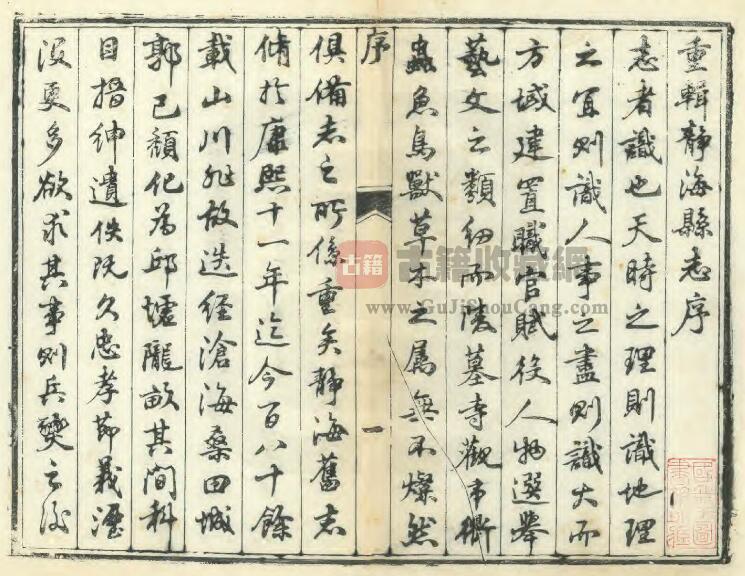 重輯靜海縣志序
志者識也天時之理則識地理
之宜則識人事之盡則識大而
方域建置職官賦役人物選舉
藝文之類細而陵墓寺觀市衢
蟲魚鳥獸草木之屬無不燦然
序
一
俱備志之所係重矣靜海舊志
脩扵康熙十一年迄今百八十餘
載山川雖故迭經滄海桑田城
郭已頹化為邱墟隴畝其間科
目搢紳遺佚既久忠孝節義湮
沒更多欲求其事則兵燹之後
古籍
古籍收藏網
www.GuJiShouCang.com